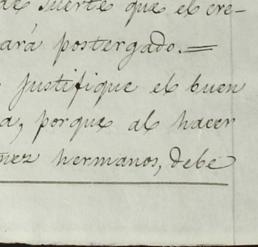 de suerte que el cre-
ará postergado.=
justifique el buen
a, porque al hacer
hermanos, debe